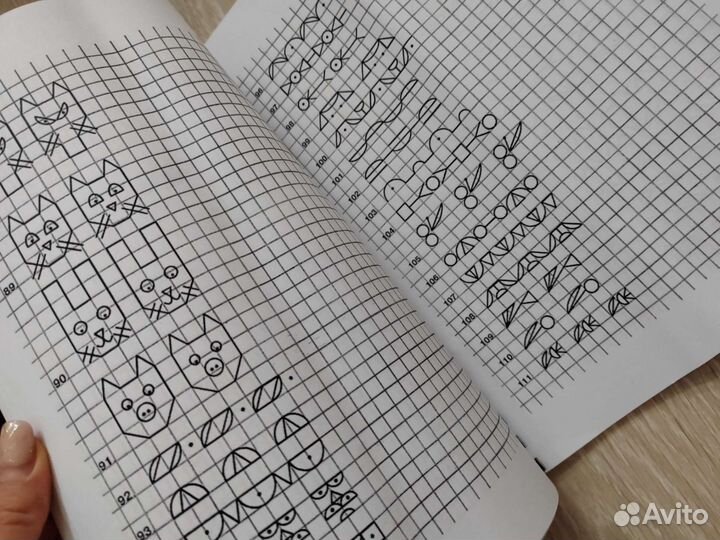 89
90
91
92
93
96
97
98
99
100
101
102
103
104
105
106
107
108
109
110
111
Avito